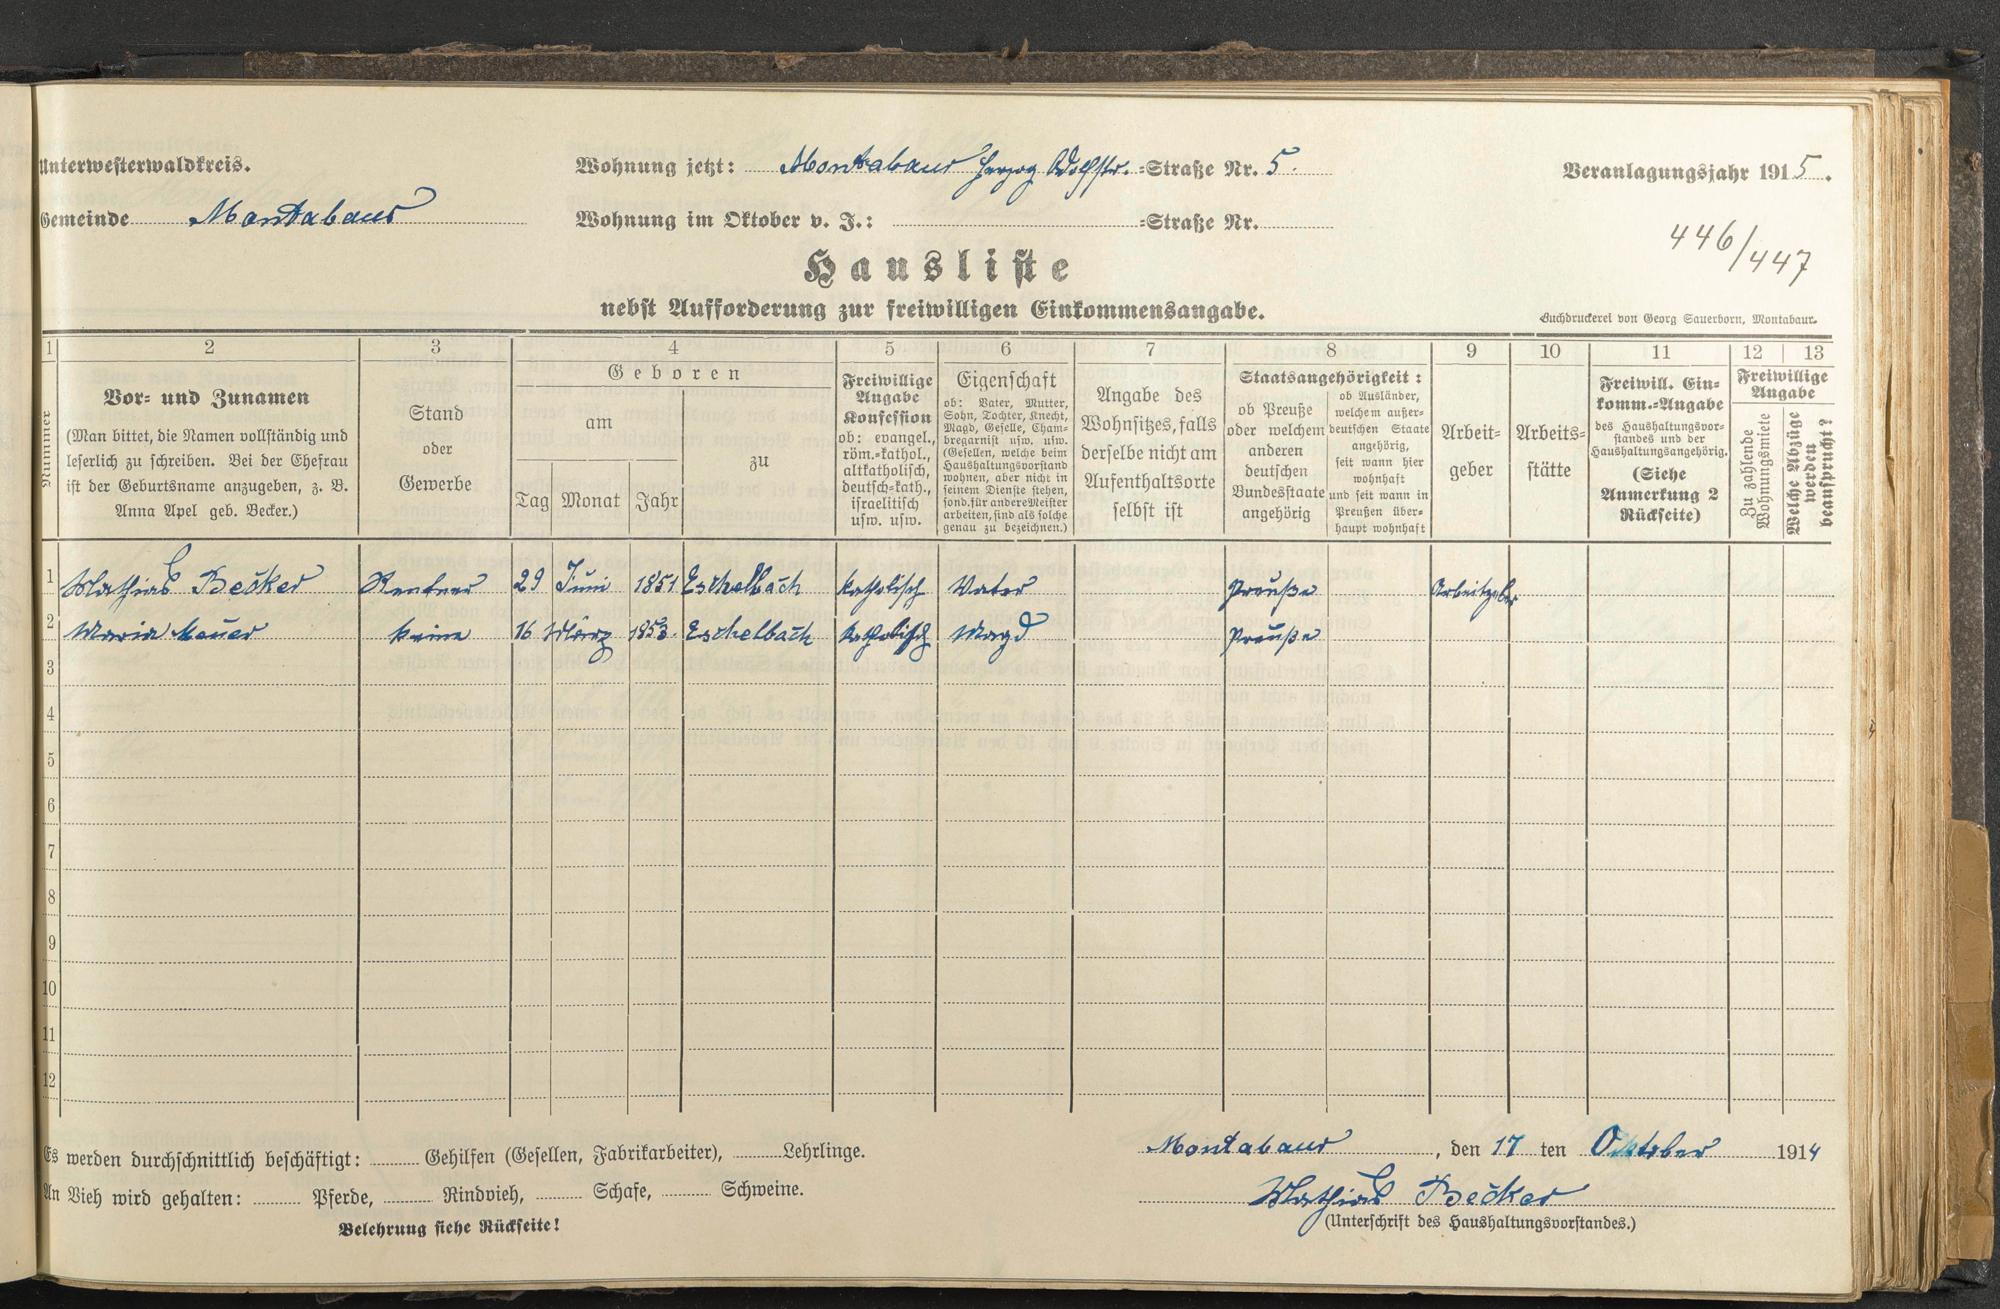 Unterwesterwaldkreis.
Gemeinde Montabaur
Wohnung jetzt: Montabaur Herzog Adolfstr. =Straße Nr. 5.
Wohnung im Oktober v. J.: =Straße Nr.
Veranlagungsjahr 1915.
446/447
Hausliste
nebst Aufforderung zur freiwilligen Einkommensangabe.
Buchdruckerei von Georg Sauerborn, Montabaur.
1 2 3 4 5 6 7 8 9 10 11 12 13
Nummer
Vor- und Zunamen
(Man bittet, die Namen vollständig und
leserlich zu schreiben. Bei der Ehefrau
ist der Geburtsname anzugeben, z. B.
Anna Apel geb. Becker.)
Stand
oder
Gewerbe
Geboren
am
Tag Monat Jahr
zu
Freiwillige
Angabe
Konfession
ob: evangel.,
röm.=kathol.,
altkatholisch,
deutsch=kath.,
israelitisch
usw. usw.
Eigenschaft
ob: Vater, Mutter,
Sohn, Tochter, Knecht,
Magd, Geselle, Cham-
bregarnist usw. usw.
(Gesellen, welche beim
Haushaltungsvorstand
wohnen, aber nicht in
seinem Dienste stehen,
sond. für andere Meister
arbeiten, sind als solche
genau zu bezeichnen.)
Angabe des
Wohnsitzes, falls
derselbe nicht am
Aufenthaltsorte
selbst ist
Staatsangehörigkeit:
ob Preuße
oder welchem
anderen
deutschen
Bundesstaate
angehörig
ob Ausländer,
welchem außer-
deutschen Staate
angehörig,
seit wann hier
wohnhaft
und seit wann in
Preußen über-
haupt wohnhaft
Arbeit-
geber
Arbeits-
stätte
Freiwill. Ein-
komm.=Angabe
des Haushaltungsvor-
standes und der
Haushaltungsangehörig.
(Siehe
Anmerkung 2
Rückseite)
Freiwillige
Angabe
Zu zahlende
Wohnungsmiete
Welche Abzüge
werden
beansprucht?
1 Mathias Becker Rentner 29 Juni 1851 Eschelbach katholisch Vater Preuße Arbeitgeber
2 Maria Meuer keine 16 März 1853. Eschelbach katholisch Magd Preuße
3
4
5
6
7
8
9
10
11
12
Es werden durchschnittlich beschäftigt: Gehilfen (Gesellen, Fabrikarbeiter), Lehrlinge.
An Vieh wird gehalten: Pferde, Rindvieh, Schafe, Schweine.
Belehrung siehe Rückseite!
Montabaur, den 17 ten Oktober 1914
Mathias Becker
(Unterschrift des Haushaltungsvorstandes.)